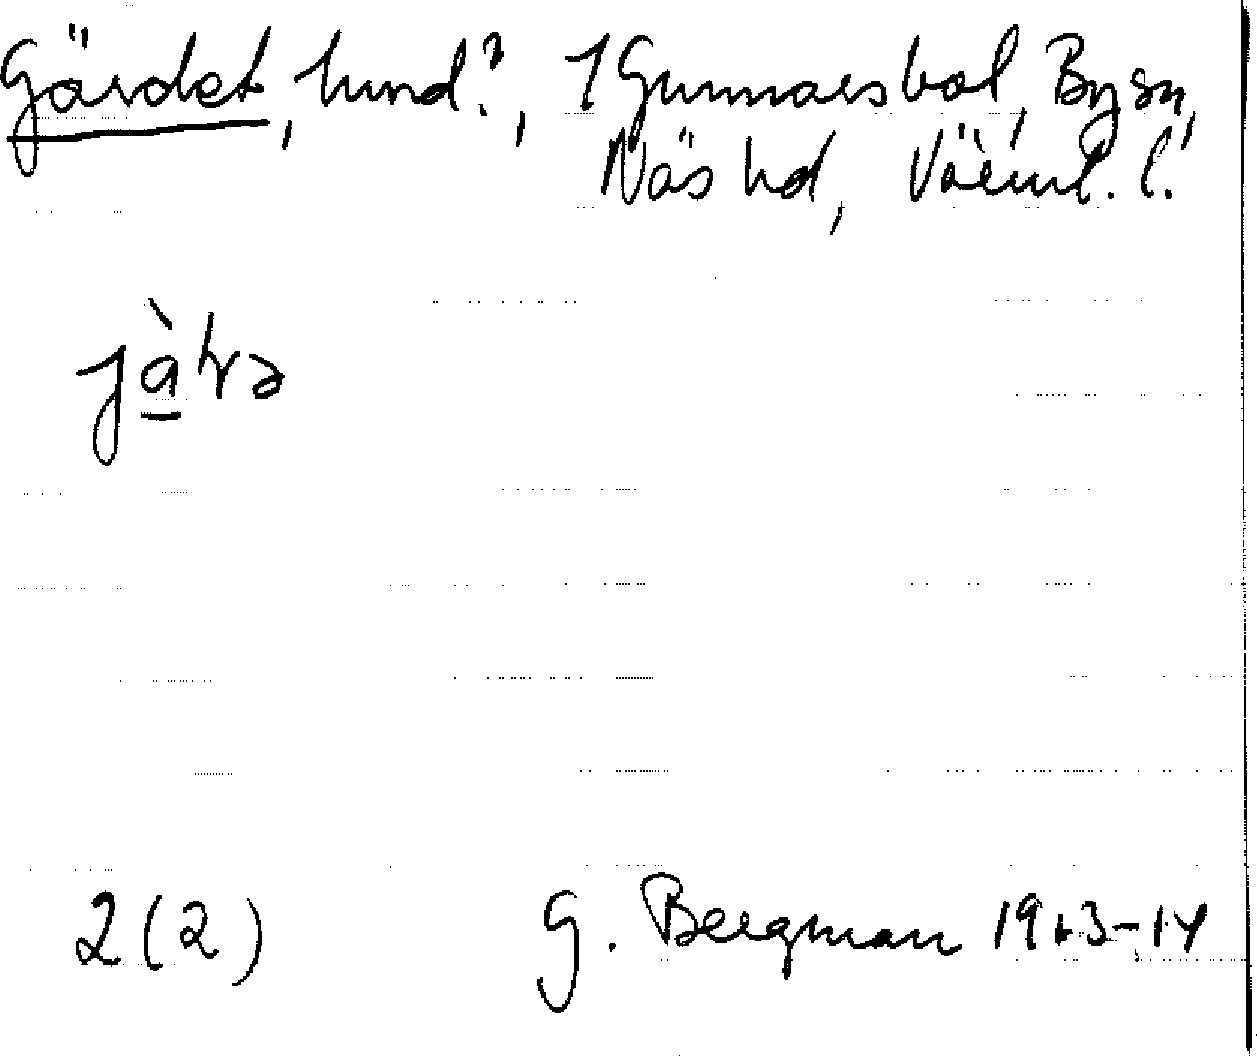 Gärdet, hmd?, 1 Gunnarsbol, By sn,
Näs hd, Värml. l.
2(2) G. Bergman 1913-14